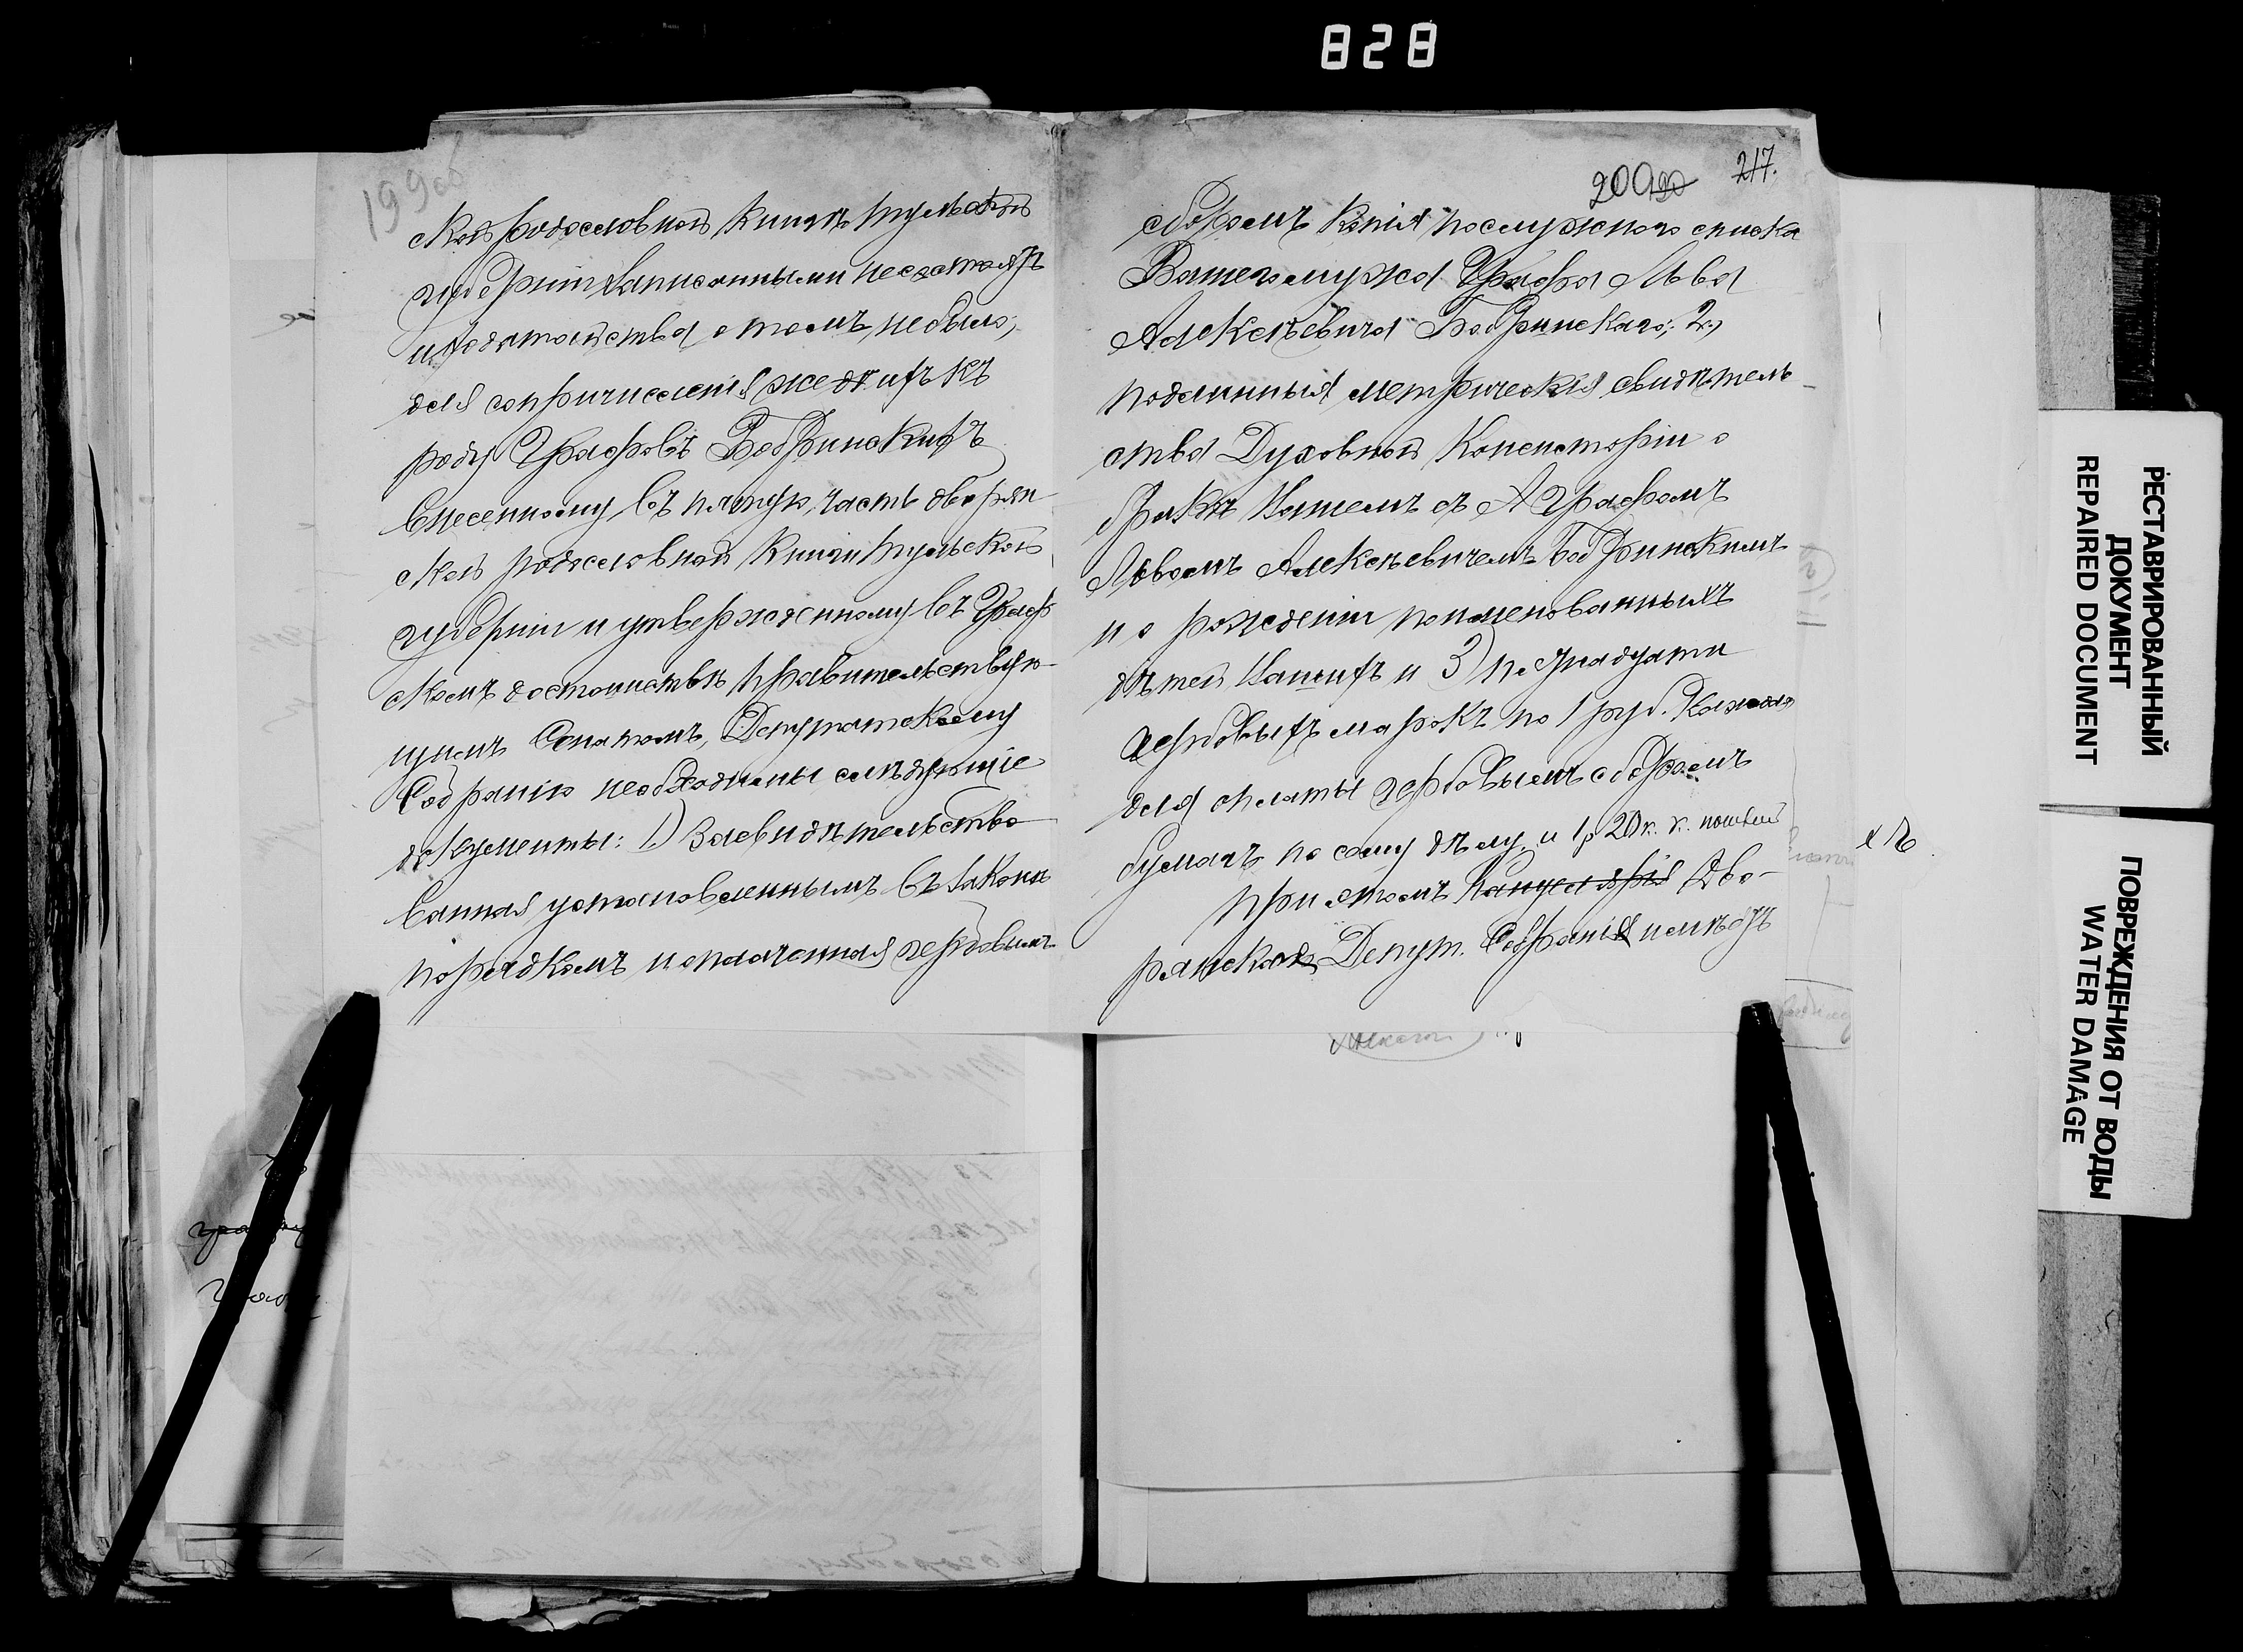 828
199об
ской родословной книгѣ Тульской
губерніи записанными не состоятъ
и ходатайства о томъ, не было;
для сопричисленія же дѣтей ихъ къ
роду Графовъ Бобринскихъ
внесенному въ пятую часть дворян-
ской родословной книги Тульской
губерніи и утвержденному въ Граф-
скомъ достоинствѣ Правительствую-
щимъ Сенатомъ, Депутатскому
Собранію необходимы слѣдующіе
документы: 1.) Засвидѣтельство
ванная установленнымъ въ законѣ
порядкомъ и оплаченная гербовымъ
200 217.
сборомъ копія послужного списка
Вашего мужа Графа Льва
Алексѣевича Бобринскаго; 2.)
подлинныя метрическія свидѣтель-
ства Духовной Консисторіи о
бракѣ Вашемъ съ Графомъ
Львомъ Алексѣевичемъ Бобринскимъ
и о рожденіи поименованныхъ
дѣтей Вашихъ и 3) пятнадцати
гербовыхъ марокъ по 1 руб. каждая
для оплаты гербовымъ сборомъ
бумагъ по сему дѣлу, и 1 р 20 к.
При этомъ Канцелярія Дво-
рянскаго Депут. Собранія имѣетъ
РЕСТАВРИРОВАННЫЙ
ДОКУМЕНТ
REPAIRED DOCUMENT
ПОВРЕЖДЕНИЯ ОТ ВОДЫ
WATER DAMAGE